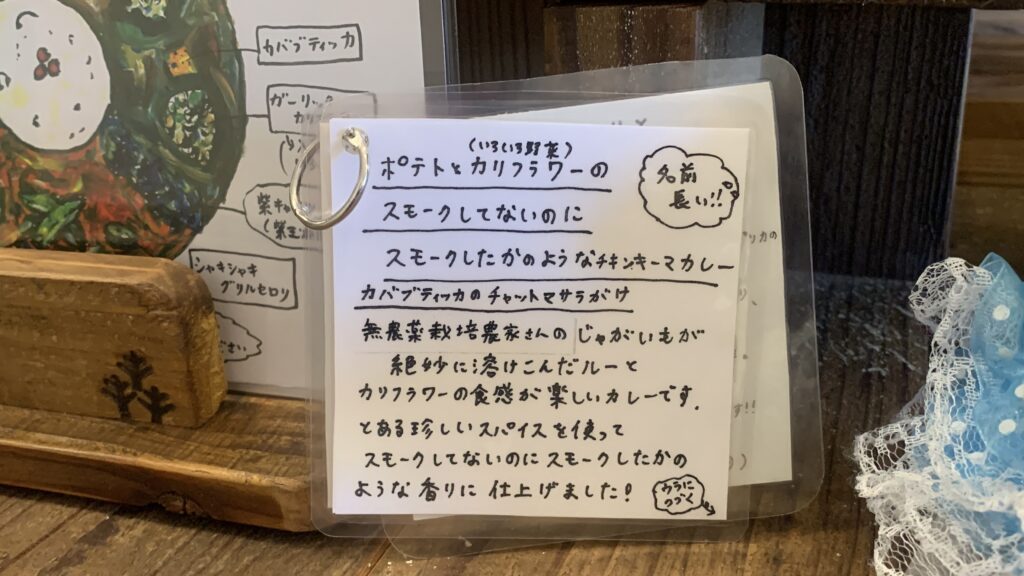 カバブティッカ
ガーリック
シャキシャキ
グリルセロリ
(いろいろ野菜)
ポテトとカリフラワーの
スモークしてないのに
スモークしたかのようなチキンキーマカレー
カバブティッカのチャットマサラがけ
名前
長い!!
無農薬栽培農家さんのじゃがいもが
絶妙に溶けこんだルーと
カリフラワーの食感が楽しいカレーです.
とある珍しいスパイスを使って
スモークしてないのにスモークしたかの
ような香りに仕上げました!
ウラに
つづく